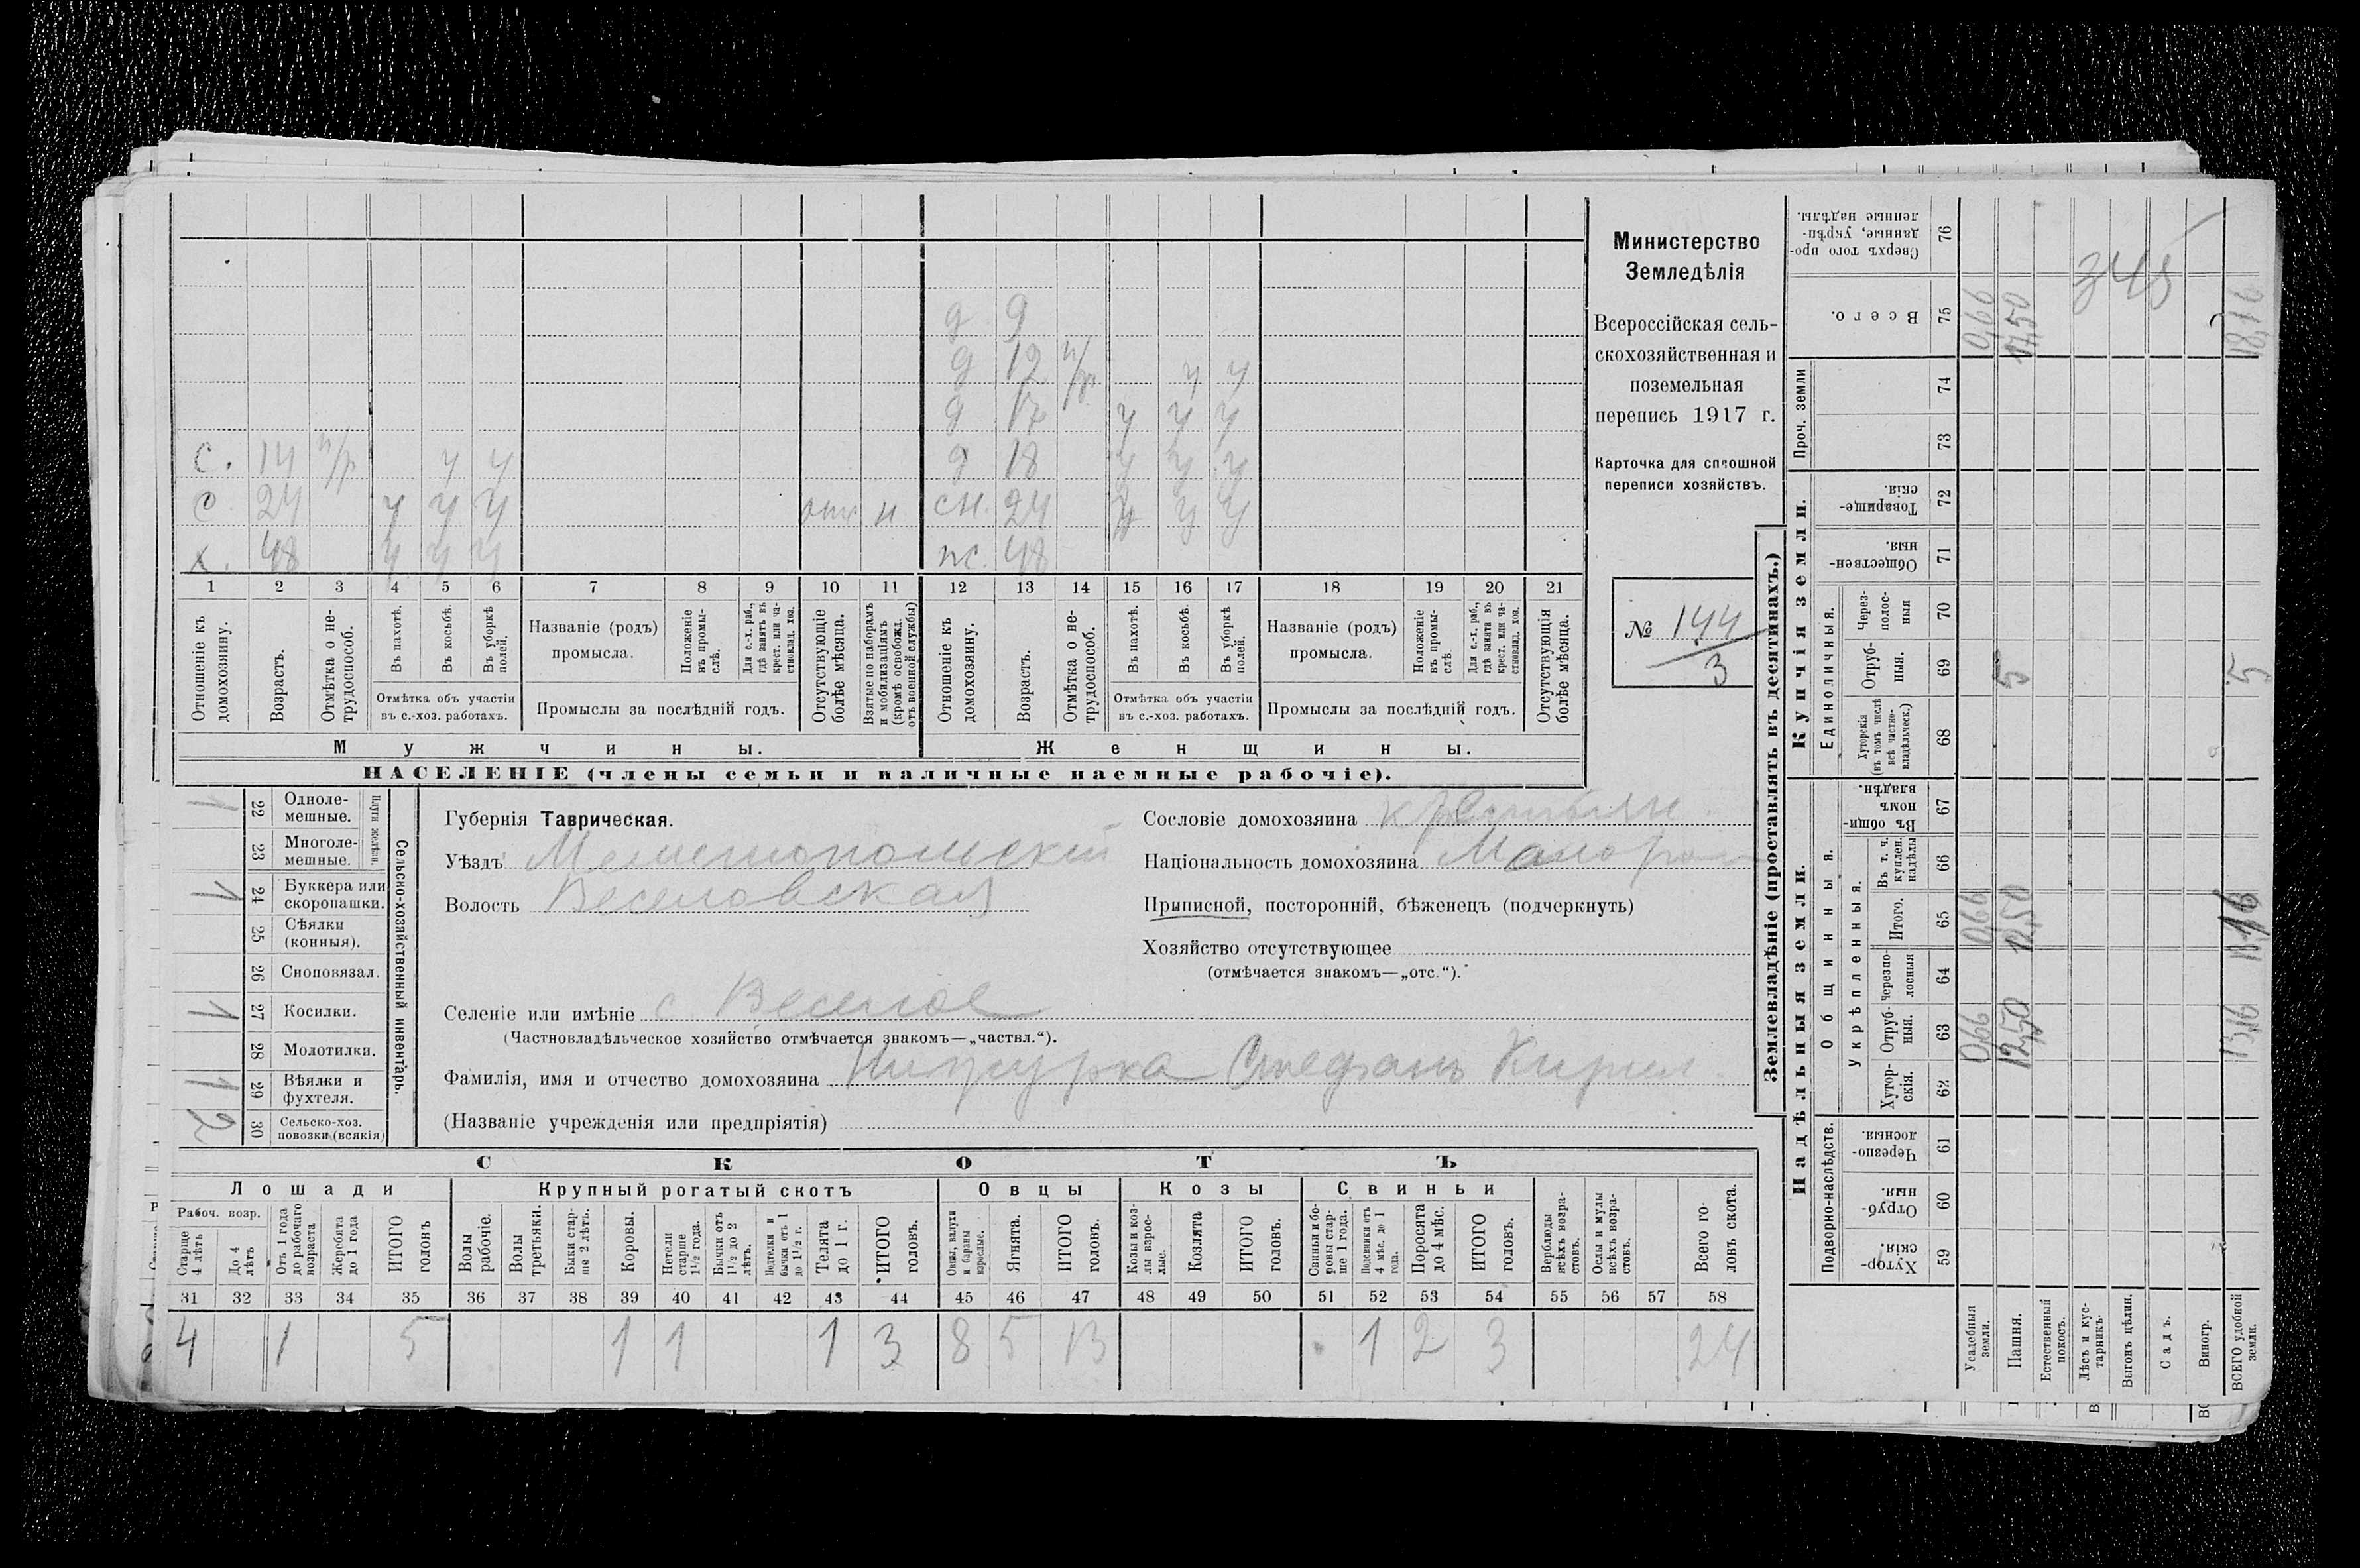 Министерство
Земледѣлія
Всероссійская сель-
скохозяйственная и
поземельная
перепись 1917 г.
Карточка для сплошной
переписи хозяйствъ.
№ 144/3
д 9
д 12 п/р ч ч
д 17 ч ч ч
с. 14 п/р ч ч д 18 ч ч ч
с 24 ч ч ч отс н сн. 24 ч ч ч
х. 48 ч ч ч ж. 48
1 2 3 4 5 6 7 8 9 10 11 12 13 14 15 16 17 18 19 20 21
Отношеніе къ домохозяину.
Возрастъ.
Отмѣтка о не-трудоспособ.
Въ пахотѣ.
Въ косьбѣ.
Въ уборкѣ полей.
Отмѣтка объ участіи въ с.-хоз. работахъ.
Названіе (родъ) промысла.
Положеніе въ промы-слѣ.
Для с.-х. раб., гдѣ занятъ въ крест. или ча-стновлад. хоз.
Промыслы за послѣдній годъ.
Отсутствующіе болѣе мѣсяца.
Взятые по наборамъ и мобилизаціямъ (кромѣ освобожд. отъ военной службы)
Отношеніе къ домохозяину.
Возрастъ.
Отмѣтка о не-трудоспособ.
Въ пахотѣ.
Въ косьбѣ.
Въ уборкѣ полей.
Отмѣтка объ участіи въ с.-хоз. работахъ.
Названіе (родъ) промысла.
Положеніе въ промы-слѣ
Для с.-х. раб., гдѣ занята въ крест. или ча-стновлад. хоз.
Промыслы за послѣдній годъ.
Отсутствующія болѣе мѣсяца.
Мужчины. Женщины.
НАСЕЛЕНІЕ (члены семьи и наличные наемные рабочіе).
Сельско-хозяйственный инвентарь.
Плуги желѣзн.
1 22 Одноле-мешные.
23 Многоле-мешные.
1 24 Буккера или скоропашки.
25 Сѣялки (конныя).
26 Сноповязал.
1 27 Косилки.
28 Молотилки.
1 29 Вѣялки и фухтеля.
2 30 Сельско-хоз. повозки (всякія)
Губернія Таврическая.
Уѣздъ Мелитопольскій
Волость Веселовская
Селеніе или имѣніе с Веселое
(Частновладѣльческое хозяйство отмѣчается знакомъ—„частвл.“).
Фамилія, имя и отчество домохозяина Стефанъ Кирил.
(Названіе учрежденія или предпріятія)
Сословіе домохозяина крестьян.
Національность домохозяина Малорос
Приписной, посторонній, бѣженецъ (подчеркнуть)
Хозяйство отсутствующее
(отмѣчается знакомъ—„отс.“).
СКОТЪ
Лошади Крупный рогатый скотъ Овцы Козы Свиньи
Рабоч. возр.
Старше 4 лѣтъ
До 4 лѣтъ
Отъ 1 года до рабочаго возраста
Жеребята до 1 года
ИТОГО головъ
Волы рабочіе.
Волы третьяки.
Быки стар-ше 2 лѣтъ.
Коровы.
Нетели старше 1½ года.
Бычки отъ 1½ до 2 лѣтъ.
Нетелки и бычки отъ 1 до 1½ г.
Телята до 1 г.
ИТОГО головъ.
Овцы, валухи и бараны взрослые.
Ягнята.
ИТОГО головъ.
Козы и коз-лы взрос-лые.
Козлята
ИТОГО головъ.
Свиньи и бо-ровы стар-ше 1 года.
Подсвинки отъ 4 мѣс. до 1 года.
Поросята до 4 мѣс.
ИТОГО головъ.
Верблюды всѣхъ возра-стовъ.
Ослы и мулы всѣхъ возра-стовъ.
Всего го-ловъ скота.
31 32 33 34 35 36 37 38 39 40 41 42 43 44 45 46 47 48 49 50 51 52 53 54 55 56 57 58
4 1 5 1 1 1 3 8 5 13 1 2 3 24
Землевладѣніе (проставлять въ десятинахъ.)
Надѣльныя земли. Купчія земли. Проч. земли
Подворно-наслѣдств.
Общинныя.
Укрѣпленныя.
Единоличныя.
Хутор-скія. 59
Отруб-ныя. 60
Черезпо-лосныя. 61
Хутор-скія. 62
Отруб-ныя. 63
Черезпо-лосныя 64
Итого. 65
Въ т. ч. куплен. надѣлы 66
Въ общи-номъ владѣн. 67
Хуторскія (въ томъ числѣ всѣ частно-владѣльческ.) 68
Отруб-ныя. 69
Через-полос-ныя 70
Обществен-ныя. 71
Товарище-скія. 72
73
74
Всего. 75
Сверхъ того про-данные, укрѣп-ленные надѣлы. 76
Усадебныя земли. 0,66 0,66 0,66
Пашня. 12,50 12,50 5 17,50
Естественный покосъ.
Лѣсъ и кус-тарникъ.
Выгонъ цѣлин.
Садъ.
Виногр.
ВСЕГО удобной земли. 13,16 5 18,16
345